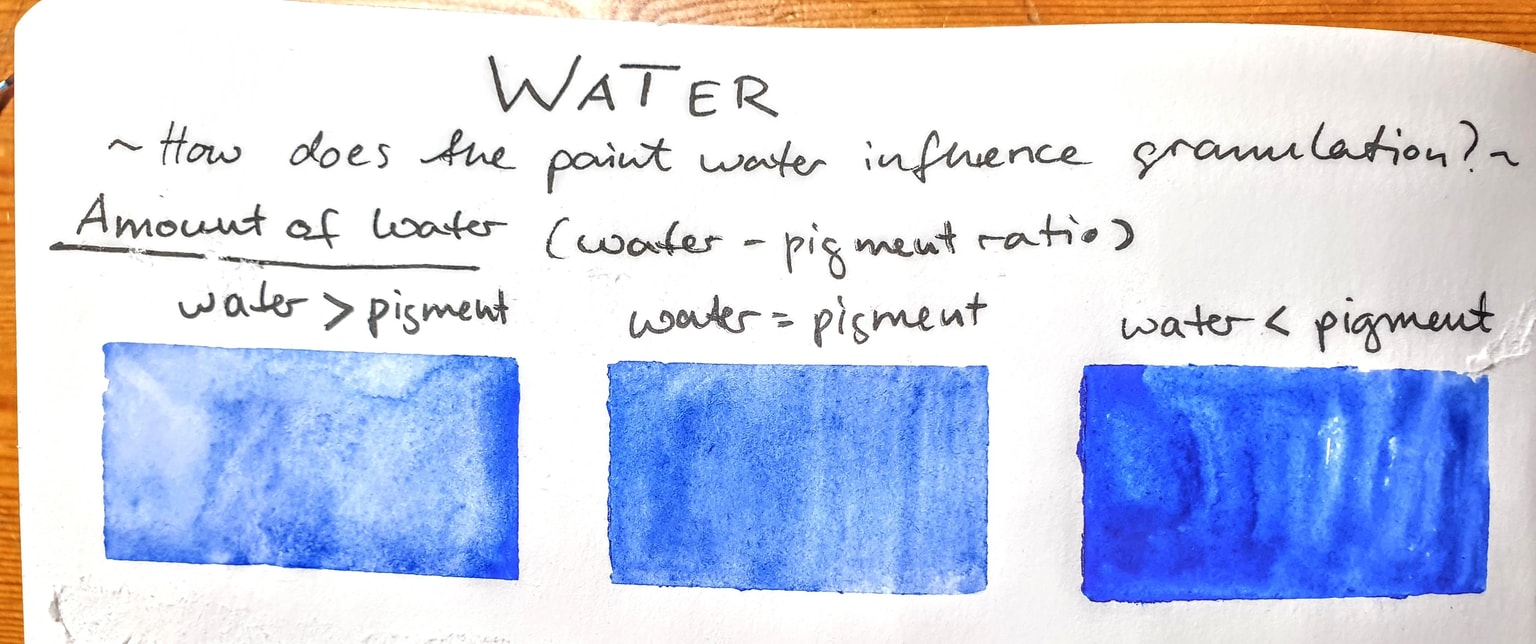 WATER
~ How does the paint water influence granulation? ~
Amount of water (water - pigment ratio)
water > pigment
water = pigment
water < pigment